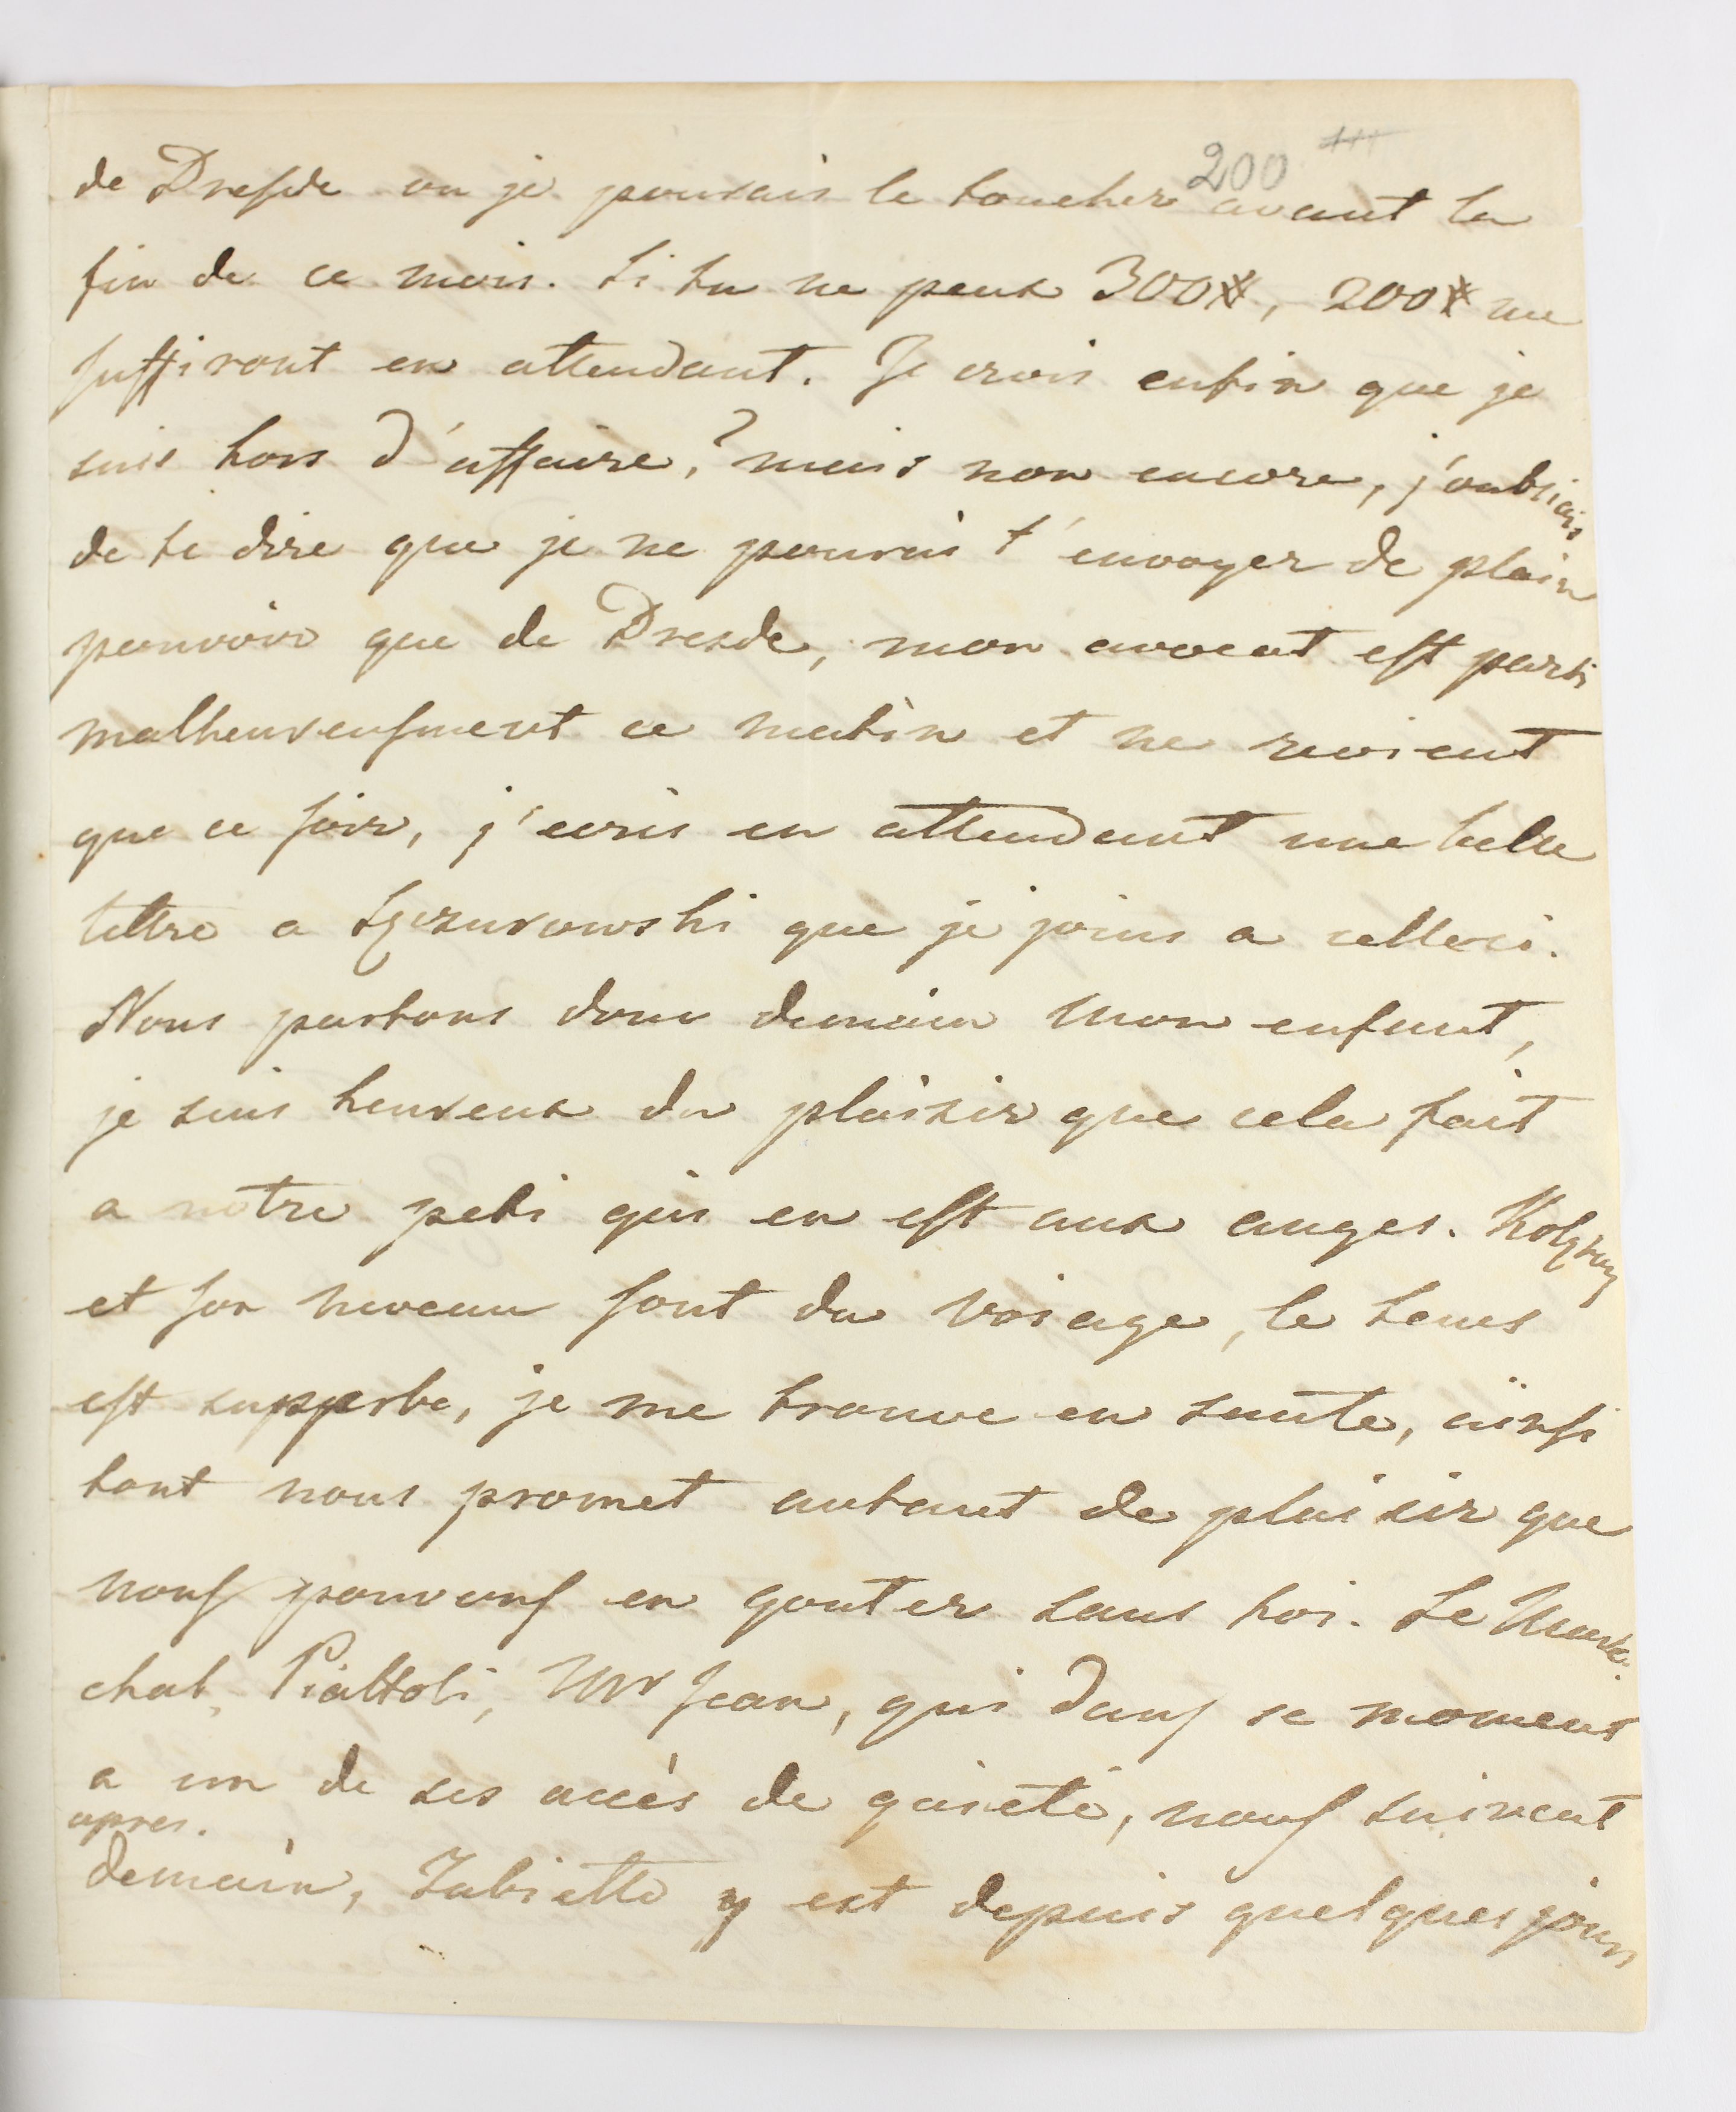 200
de Dresde ou je pourais le toucher avant la
fin de ce mois. Si tu ne peux 300#, 200# me
suffiront en attendant. Je crois enfin que je
suis hors d'affaire,? mais non encore, j'oubliais
de te dire que je ne pouvais t'envoyer de plain
pouvoir que de Dresde, mon avocat est parti
malheureusment ce matin et ne revient
que ce soir, j'ecris en attendant une belle
lettre a que je joins a celleci.
Nous partons donc demain mon enfant,
je suis heureux du plaisir que cela fait
a notre peti qui en est aux anges.
et son neveau sont du voiage, le tems
est supperbe, je me trouve en sante, ainsi
tout nous promet autant de plaisir que
nous pouvons en gouter sans toi. Le Mare-
chal, Piattoli, Mr Jean, qui dans se moment
a un de ses accès de gaieté, nous suivent
apres.
demain, Juliette y est depuis quelques jours